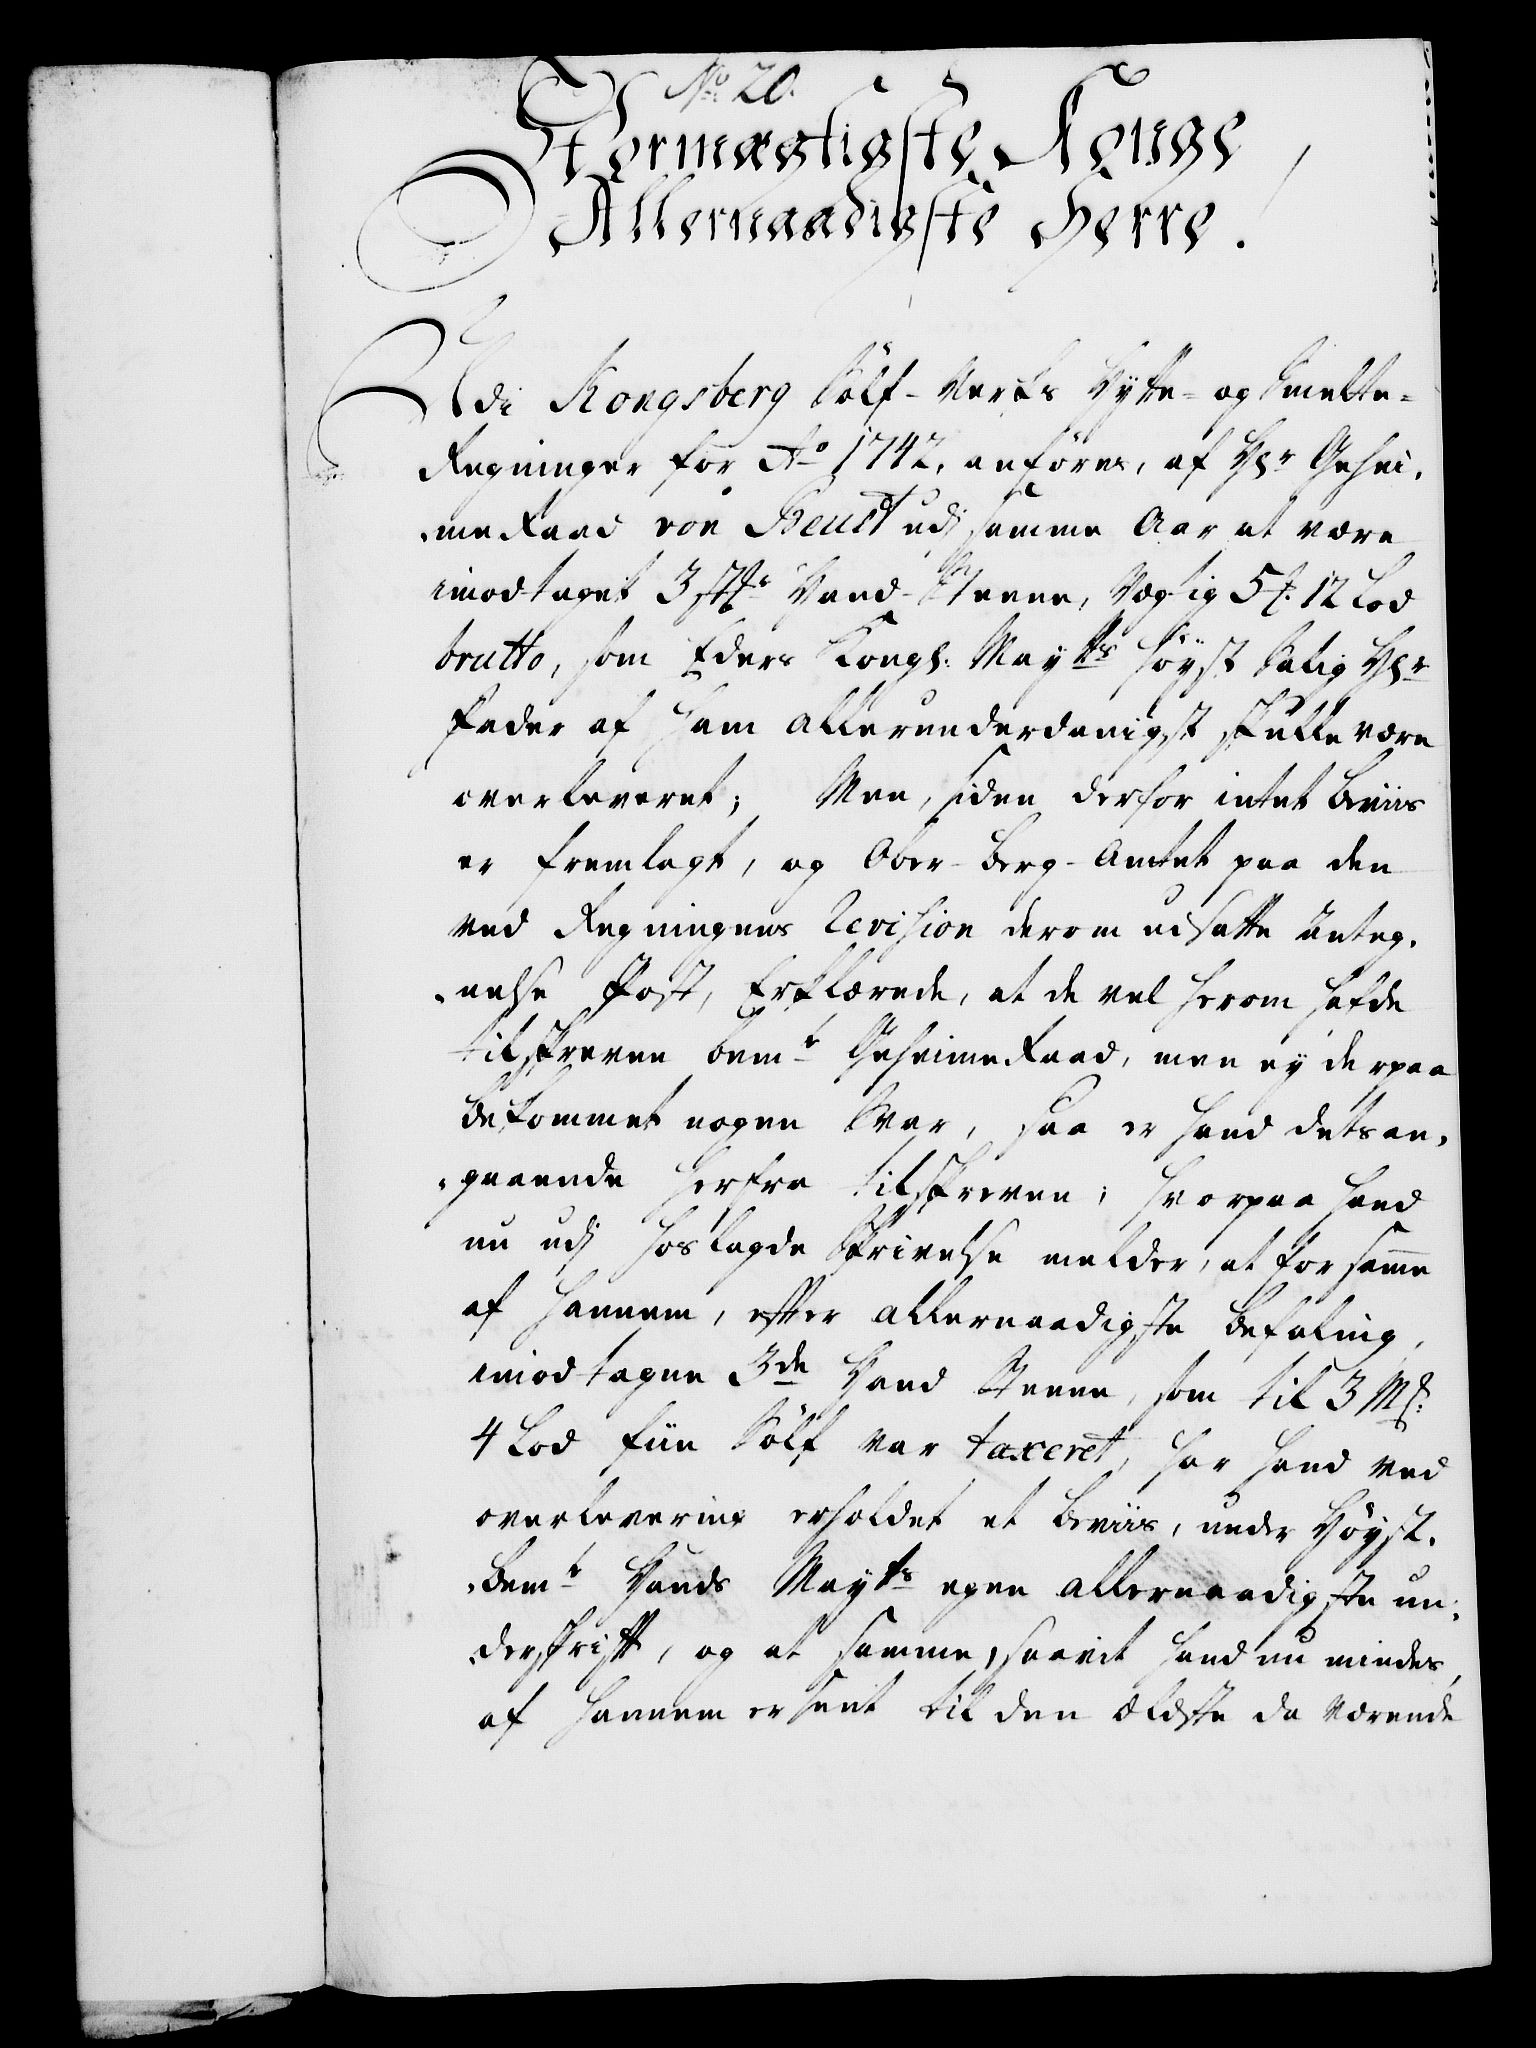 No. 20.
Stormægtigste Konge
Allernaadigste Herre!
Udi Kongsberg Sölf-Verks Hytte- og Smelte-
Regninger for Ao 1742, anföres, af Hr Gehei-
-meRaad von Beust udj samme Aar at være
imodtaget 3 st: Hand-Steene, Vegtig 5 ℔. 12 Lod
brutto, som Eders Kongl: Mayts höyst Salig Hr
Fader af ham allerunderdanigst skulle være
overleveret; Men, siden derfor intet Beviis
er fremlagt, og Ober-Berg-Amtet paa den
ved Regningens Revision derom udsatte Anteg-
-nelse Post, Erklærede, at de vel herom hafde
tilskreven bemte GeheimeRaad, men ey derpaa
bekommet nogen Svar, saa er hand dets an-
-gaaende herfra tilskreven; hvorpaa hand
nu udj hoslagde Skrivelse melder, at for samme
af hannem, efter allernaadigste Befaling,
imodtagne 3de Hand Steene, som til 3 Mk:
4 Lod fiin Sölf var taxeret, har hand ved
overlevering erholdet et Beviis, under Höyst-
-bemte Hands Mayts egen allernaadigste un-
-derskrift, og at samme, saavit hand nu mindes,
af hannem er sent til den ældste da værende